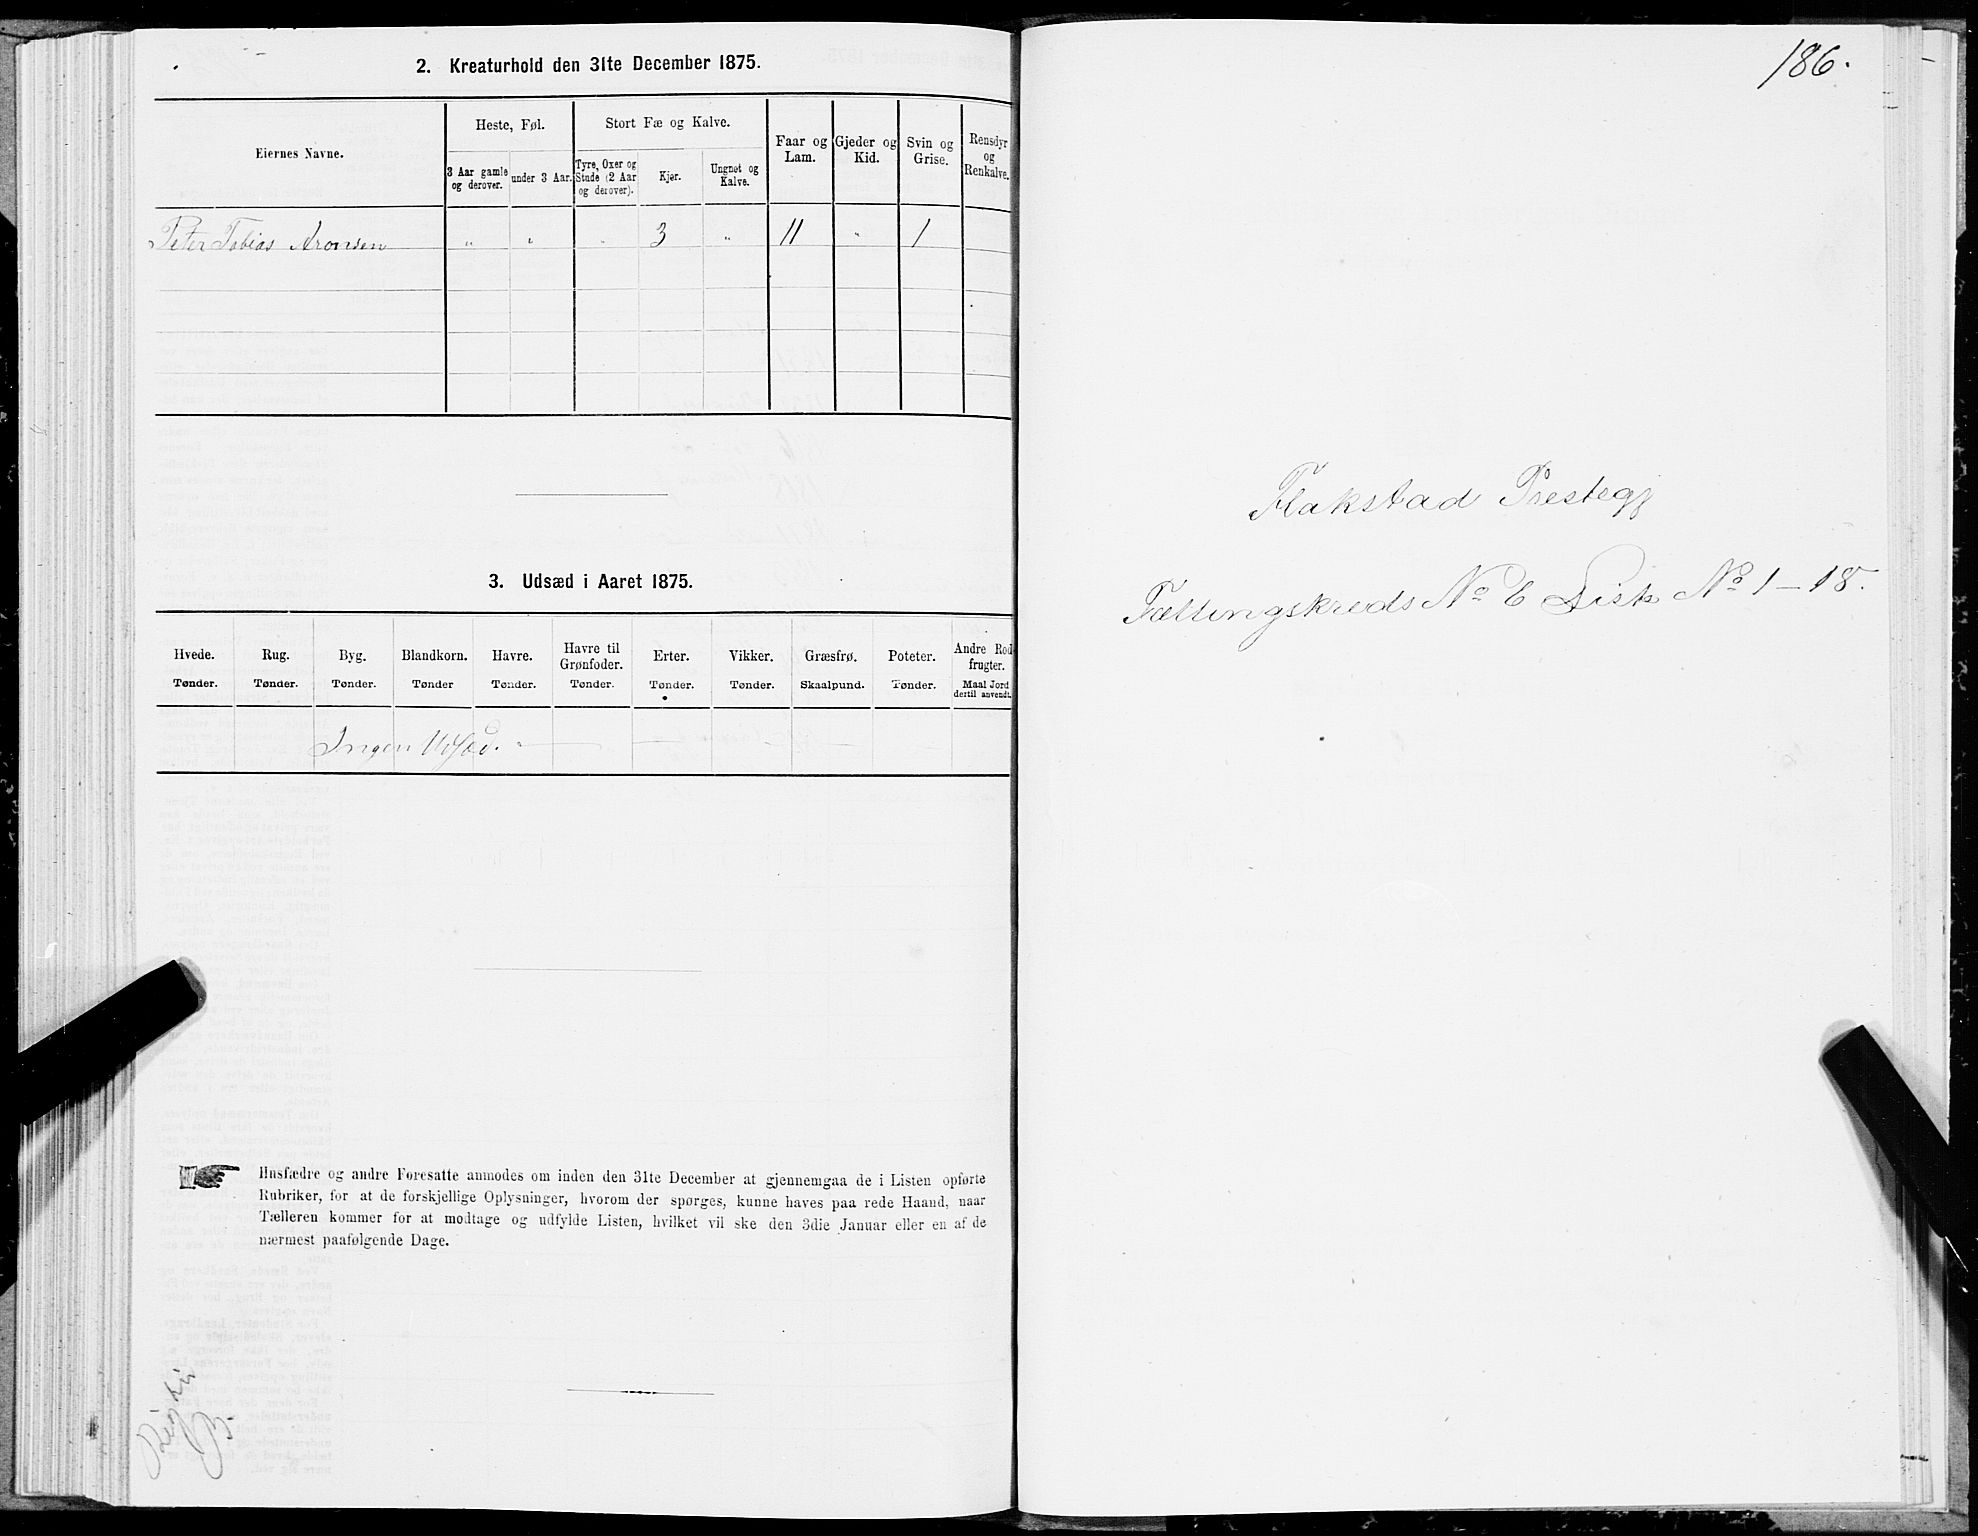 2. Kreaturhold den 31te December 1875.
Eiernes Navne.
Heste, Føl.
Stort Fæ og Kalve.
Faar og Lam.
Gjeder og Kid.
Svin og Grise.
Rensdyr og Renkalve.
3 Aar gamle og derover.
under 3 Aar.
Tyre, Oxer og Stude (2 Aar og derover).
Kjør.
Ungnøt og Kalve.
Peter Tobias Aronsen " " " 3 " 11 " 1
3. Udsæd i Aaret 1875.
Hvede. Rug. Byg. Blandkorn. Havre. Havre til Grønfoder. Erter. Vikker. Græsfrø. Poteter. Andre Rodfrugter.
Tønder. Tønder. Tønder. Tønder Tønder. Tønder. Tønder. Tønder. Skaalpund. Tønder. Maal Jord dertil anvendt.
Ingen Udsæd.
Husfædre og andre Foresatte anmodes om inden den 31te December at gjennemgaa de i Listen opførte
Rubriker, for at de forskjellige Oplysninger, hvorom der spørges, kunne haves paa rede Haand, naar
Tælleren kommer for at modtage og udfylde Listen, hvilket vil ske den 3die Januar eller en af de
nærmest paafølgende Dage.
186.
Flakstad Prestegj
Tællingskreds No 6 Liste No 1-18.